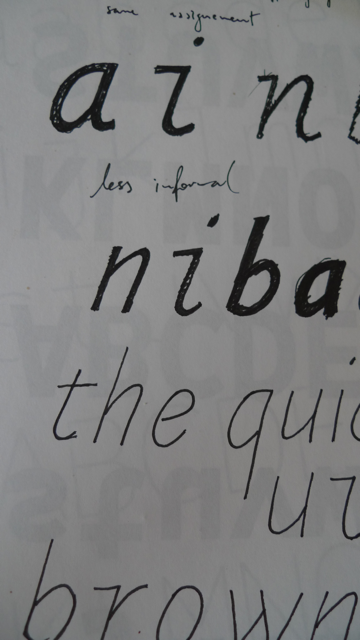 same assignement
ain
less informal
niba
the qui
ur
brown